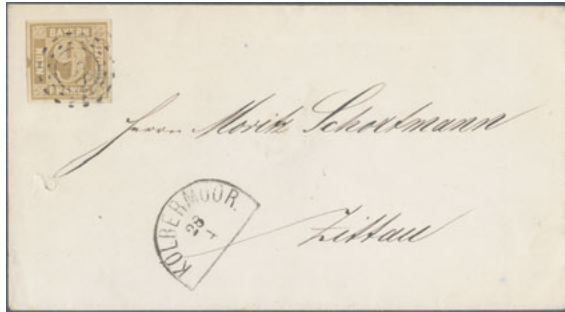 BAYERN
9
Herrn Moritz Schortmann
KOLBERMOOR.
28
1
Zittau